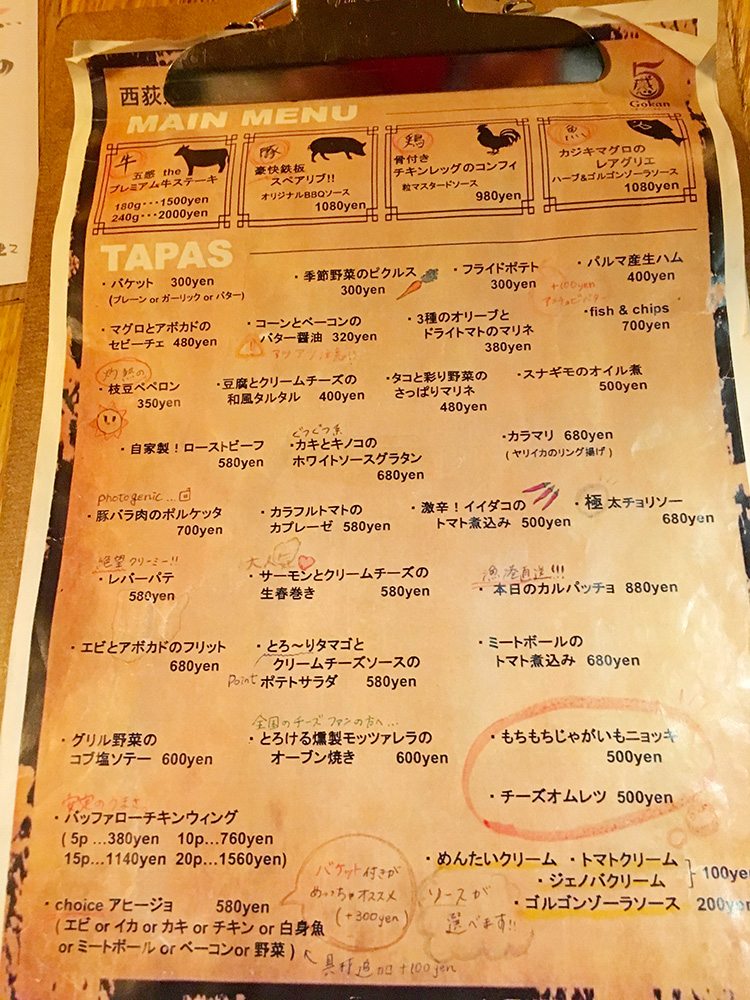 西荻
5
感
Gokan
MAIN MENU
牛
五感 the
プレミアム牛ステーキ
180g・・・1500yen
240g・・・2000yen
豚
豪快鉄板
スペアリブ!!
オリジナルBBQソース
1080yen
鶏
骨付き
チキンレッグのコンフィ
粒マスタードソース
980yen
魚
カジキマグロの
レアグリエ
ハーブ&ゴルゴンゾーラソース
1080yen
TAPAS
・バケット 300yen
(プレーン or ガーリック or バター)
+100yen
アンチョビバター
・季節野菜のピクルス
300yen
・フライドポテト
300yen
・パルマ産生ハム
400yen
・マグロとアボカドの
セビーチェ 480yen
・コーンとベーコンの
バター醤油 320yen
アツアツ注意!!
・3種のオリーブと
ドライトマトのマリネ
380yen
・fish & chips
700yen
灼熱の
・枝豆ペペロン
350yen
・豆腐とクリームチーズの
和風タルタル 400yen
・タコと彩り野菜の
さっぱりマリネ
480yen
・スナギモのオイル煮
500yen
・自家製！ローストビーフ
580yen
ぐつぐつ系
・カキとキノコの
ホワイトソースグラタン
680yen
・カラマリ 680yen
(ヤリイカのリング揚げ)
photogenic...
・豚バラ肉のポルケッタ
700yen
・カラフルトマトの
カプレーゼ 580yen
・激辛！イイダコの
トマト煮込み 500yen
・極太チョリソー
680yen
絶望クリーミー!!
・レバーパテ
580yen
大人気
・サーモンとクリームチーズの
生春巻き 580yen
漁港直送!!!
・本日のカルパッチョ 880yen
・エビとアボカドのフリット
680yen
・とろ～りタマゴと
クリームチーズソースの
Point ポテトサラダ 580yen
・ミートボールの
トマト煮込み 680yen
・グリル野菜の
コブ塩ソテー 600yen
全国のチーズファンの方へ...
・とろける燻製モッツァレラの
オーブン焼き 600yen
・もちもちじゃがいもニョッキ
500yen
・チーズオムレツ 500yen
・バッファローチキンウィング
(5p ...380yen 10p...760yen
15p...1140yen 20p...1560yen)
・めんたいクリーム ・トマトクリーム
・ジェノバクリーム
100ye
・ゴルゴンゾーラソース 200ye
ソースが
選べます!!
バケット付きが
めっちゃオススメ
(+300yen)
・choice アヒージョ 580yen
(エビ or イカ or カキ or チキン or 白身魚
or ミートボール or ベーコン or 野菜)
具材追加 +100yen